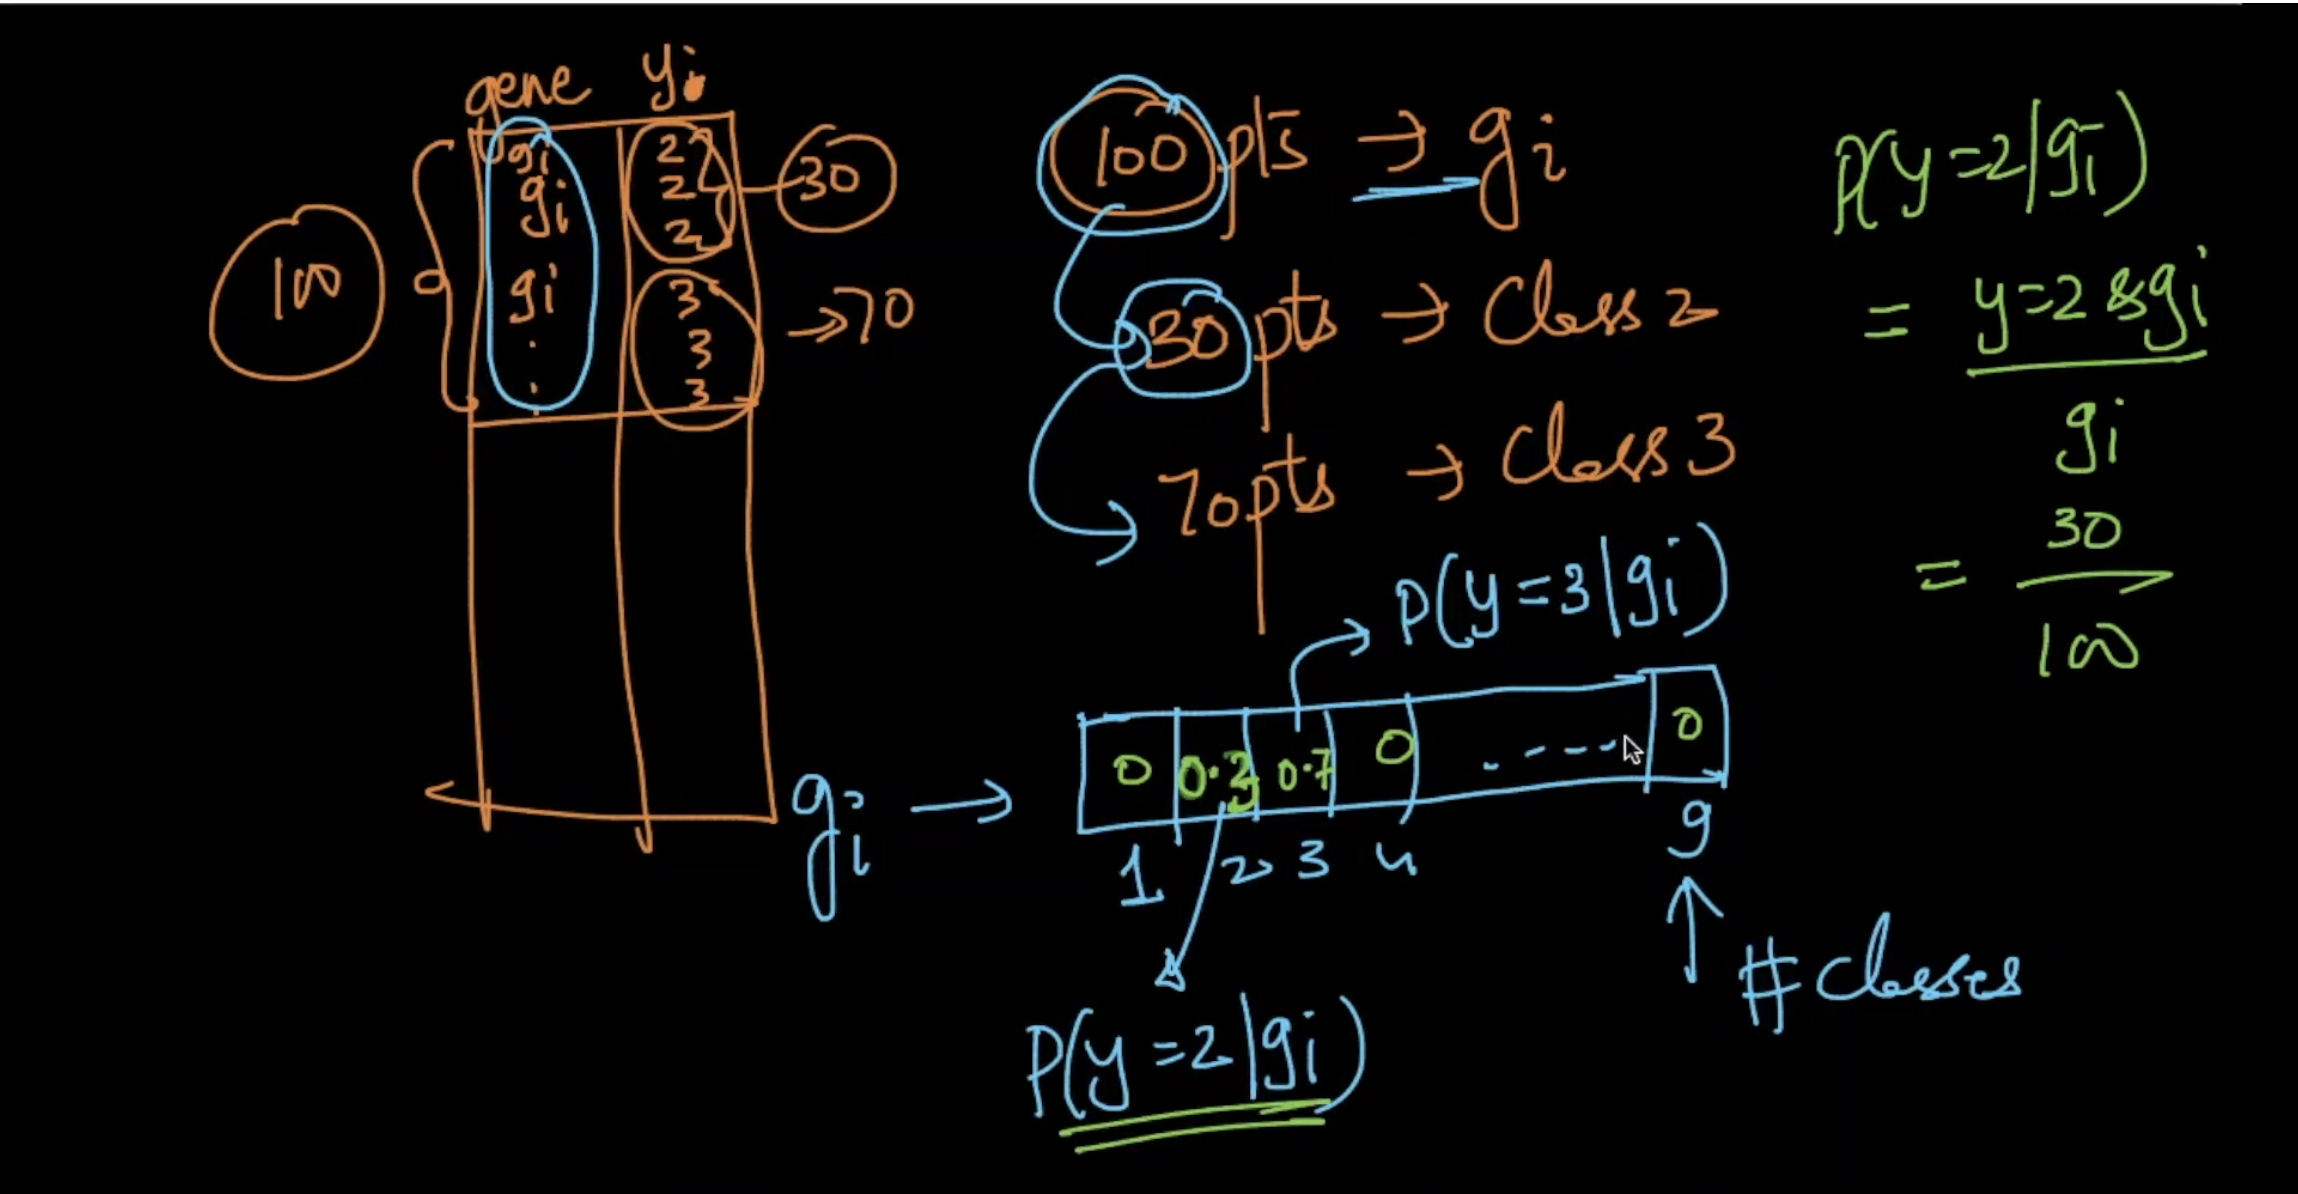 gene yi
gi 2
gi 2
2
30
100
gi 3
. 3
. 3
→ 70
100 pts → gi
30 pts → Class 2
70 pts → Class 3
P(y=2|gi)
= y=2 & gi
gi
= 30
100
P(y=3|gi)
gi → 0 0.3 0.7 0 . - - - - 0
1 2 3 4 9
# classes
P(y=2|gi)